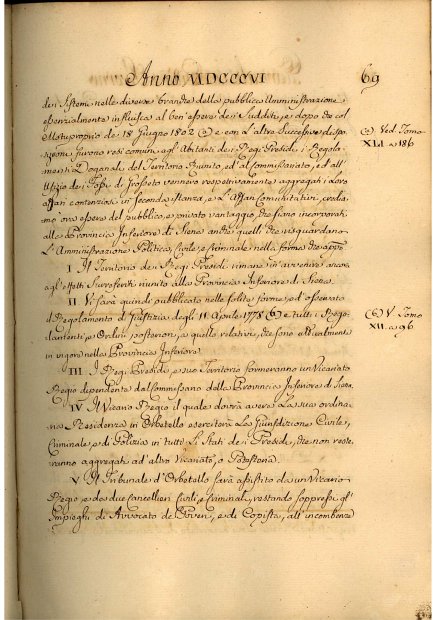 Anno MDCCCVI
69
dei Sistemi nelle diverse branche della pubblica Amministrazione
essenzialmente influisca al ben'essere dei Sudditi, e dopo che col
Motuproprio de 18 Giugno 1802 (a) e con l'altre successive dispo
(a) Ved. Tomo
XLI a 186
sizioni furono resi comuni agl'Abitanti dei Regi Presidi, i Regola
menti Doganali del Territorio Riunito, ed al Commissariato, ed all'
Ufizio dei Fossi di Grosseto vennero respettivamente aggregati i loro
affari contenziosi in seconda istanza, e l'Affari Comunitativi, credia
mo ora essere del pubblico, e privato vantaggio che siano incorporati
alla Provincia Inferiore di Siena anche quelli che risguardano
L'Amministrazione Politica, Civile e Criminale nella forma che appo
I Il Territorio dei Regi Presidi rimane in avvenire ancora
agl'effetti surriferiti riunito alla Provincia Inferiore di Siena.
II Vi sarà quindi pubblicato nelle solite forme, ed osservato
il Regolamento di Giustizia degli 11 Aprile 1778 (b) e tutti i Rego-
(b) V Tomo
XII a 96
lamenti, e Ordini posteriori, a quello relativi, che sono attualmente
in vigore nella Provincia Inferiore
III I Regi Presidi, e suo Territorio formeranno un Vicariato
Regio dipendente dal Commissario della Provincia Inferiore di Siena.
IV Il Vicario Regio il quale dovrà avere la sua ordina
ria Residenza in Orbetello eserciterà la Giurisdizione Civile,
Criminale, e di Polizia in tutti li Stati dei Presidi, che non reste
ranno aggregati ad altro Vicariato, o Potesteria.
V Il Tribunale d'Orbetello sarà assistito da un Vicario
Regio, e da due Cancellieri Civili, e Criminali, restando soppressi gl'
Impieghi di Avvocato de Poveri, e di Copista, all'incombenze